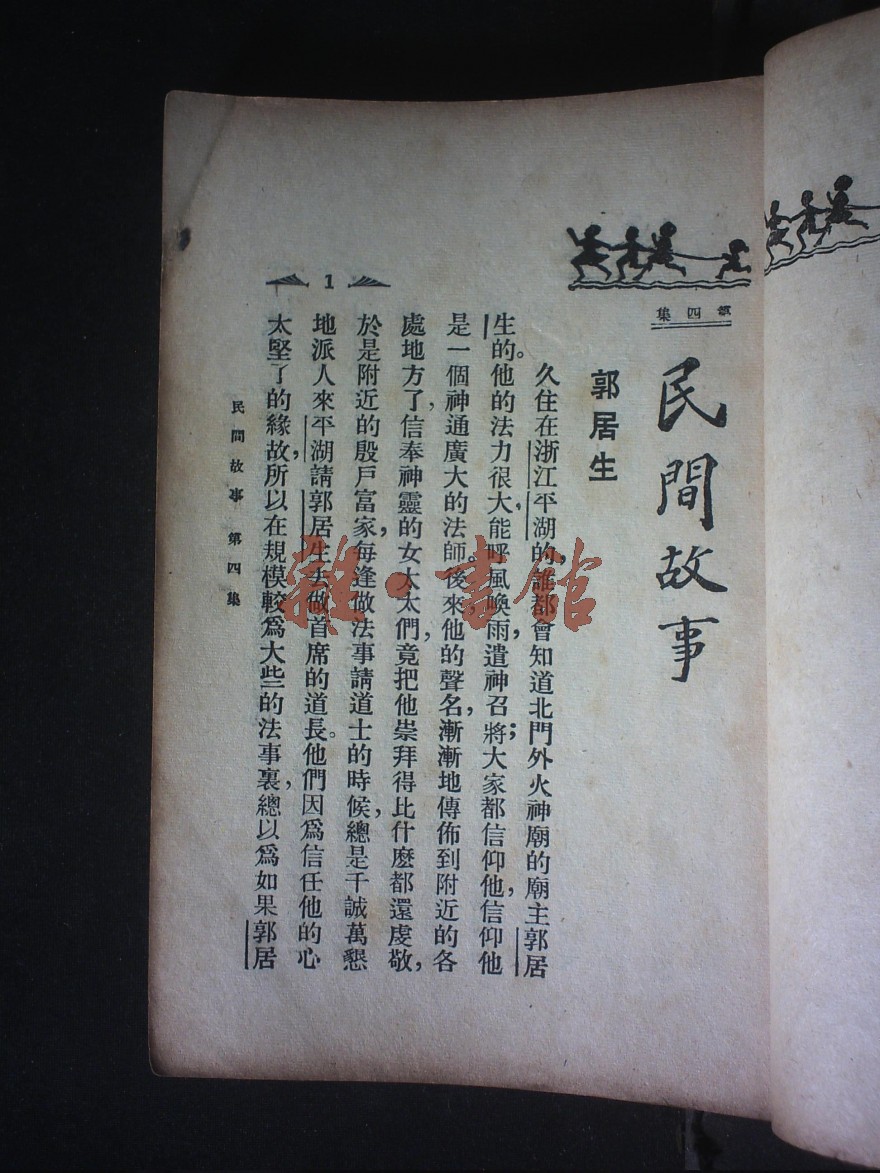 第四集
民間故事
郭居生
久住在浙江平湖的，誰都會知道北門外火神廟的廟主郭居
生的。他的法力很大，能呼風喚雨，遣神召將；大家都信仰他，信仰他
是一個神通廣大的法師。後來，他的聲名，漸漸地傳佈到附近的各
處地方了，信奉神靈的女太太們，竟把他崇拜得比什麼都還虔敬，
於是附近的殷戶富家，每逢做法事請道士的時候，總是千誠萬懇
地派人來平湖請郭居生去做首席的道長。他們因爲信任他的心
太堅了的緣故，所以在規模較爲大些的法事裏，總以爲如果郭居
1
民間故事 第四集
雜·書館